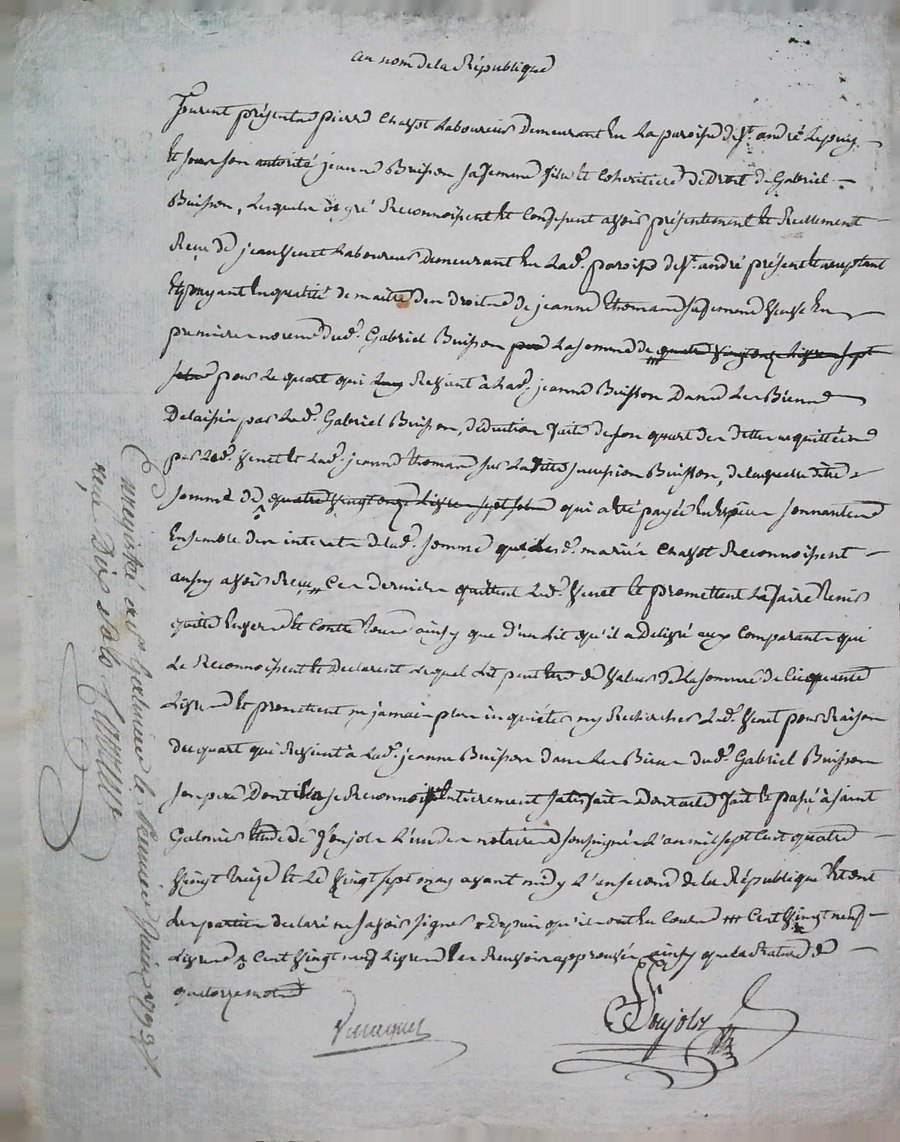 au nom de la République
Furent présents pierre Chazot Laboureur demeurant En La paroise de St. andré Lepuy
Et sous son autorité jeanne Buisson sa femme fille et Coheritiere de Droit de Gabriel
Buisson, Lesquels de gré Reconnoissent et Confessent avoir présentement et Reellement
Reçu de jean Venet Laboureur demeurant En Lad. paroise de St. andré présent acceptant
Et payant En qualité de maitre des droits de jeanne thomas sa femme veuve En
premieres noces dud. Gabriel Buisson La somme de quatre vingt onze Livres sept
sols pour Le quart qui Revient à Lad. jeanne Buisson Dans Les Biens
Delaissés par Led. Gabriel Buisson, deduction faite de son quart des dettes acquittées
par Led. Venet et Lad. jeanne thomas sur Ladite succession Buisson, de laquelle dite
somme de quatre vingt onze Livres sept sols qui a été payée En Espece sonnante
Ensemble des interets de lad. somme que Lesd. mariés Chazot Reconnoissent
aussy avoir Reçu, Ces derniers quittent Led. Venet et promettent La faire tenir
quitte Envers et Contre tous ainsy que d'un Lit qu'il a delivré aux Comparants qui
Le Reconnoissent et Declarent Lequel Lit peut être de valeur de La somme de Cinquante
Livres Et promettent ne jamais plus inquiéter ny Rechercher Led. Venet pour Raison
du quart qui Revient à Lad. jeanne Buisson dans Les Biens dud. Gabriel Buisson
son pere Dont Elle se Reconnoit Entierement satisfaite dont acte fait et passé à saint
Galmier Etude de Ponjols L'un des notaires soussignés L'an mil sept Cent quatre
vingt treize et Le vingt sept may avant midy L'an second de la République Et ont
Les parties declaré ne savoir signer de Ce Enquis Cent vingt neuf
Livres Cent vingt neuf Livres Les Renvois approuvés ainsy que La Rature de
quatorze mots
Ponjols
Enregistré à St. Galmier le premier juin 1793
reçu Dix sols